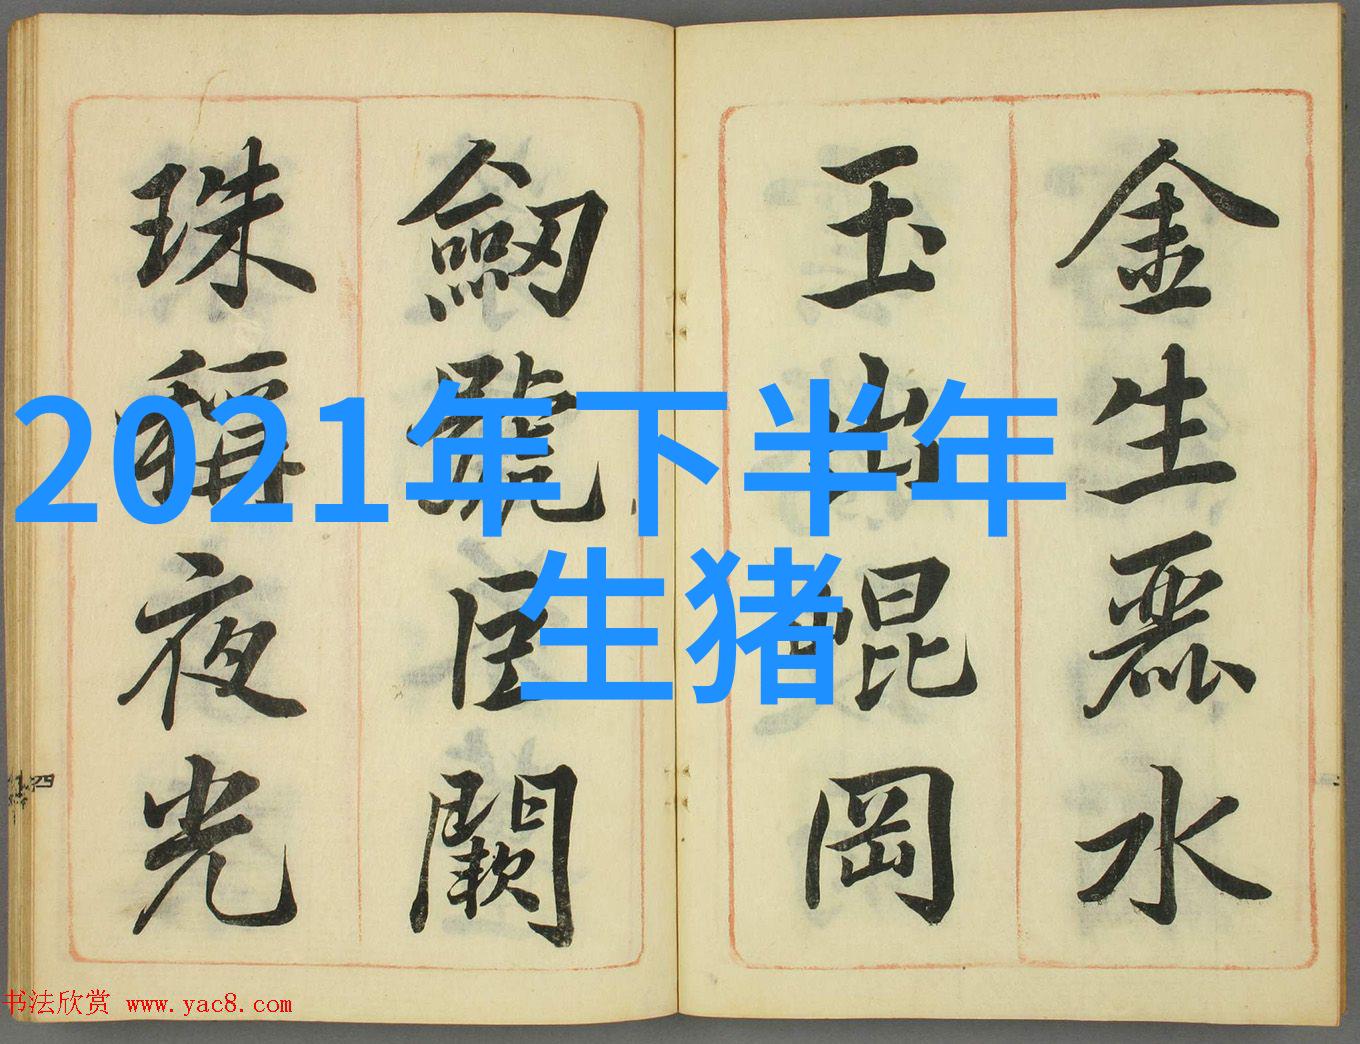 金生麗水
玉出崐岡
劒號巨闕
珠稱夜光
2021年下半年
生猪
四
书法欣赏 www.yac8.com